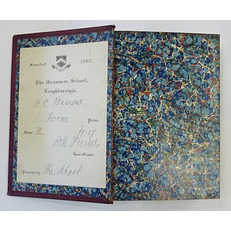 Founded 1495
The Grammar School,
Loughborough.
H C Barrow
Form Prize
Form II
Head Master.
Presented by The School